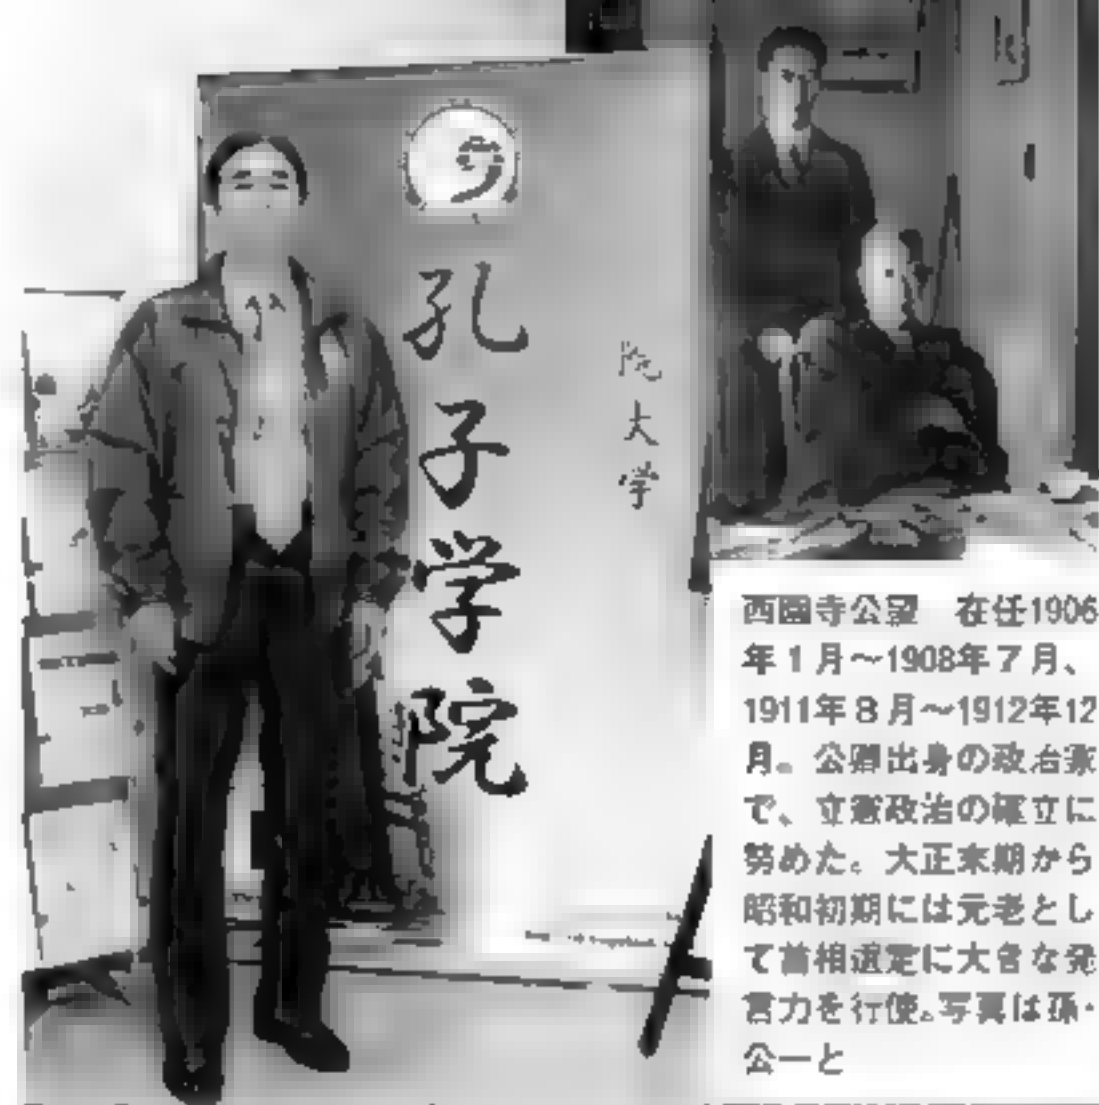 孔子学院
院大学
西園寺公望　在任1906
年1月～1908年7月、
1911年8月～1912年12
月。公卿出身の政治家
で、立憲政治の確立に
努めた。大正末期から
昭和初期には元老とし
て首相選定に大きな発
言力を行使。写真は孫・
公一と